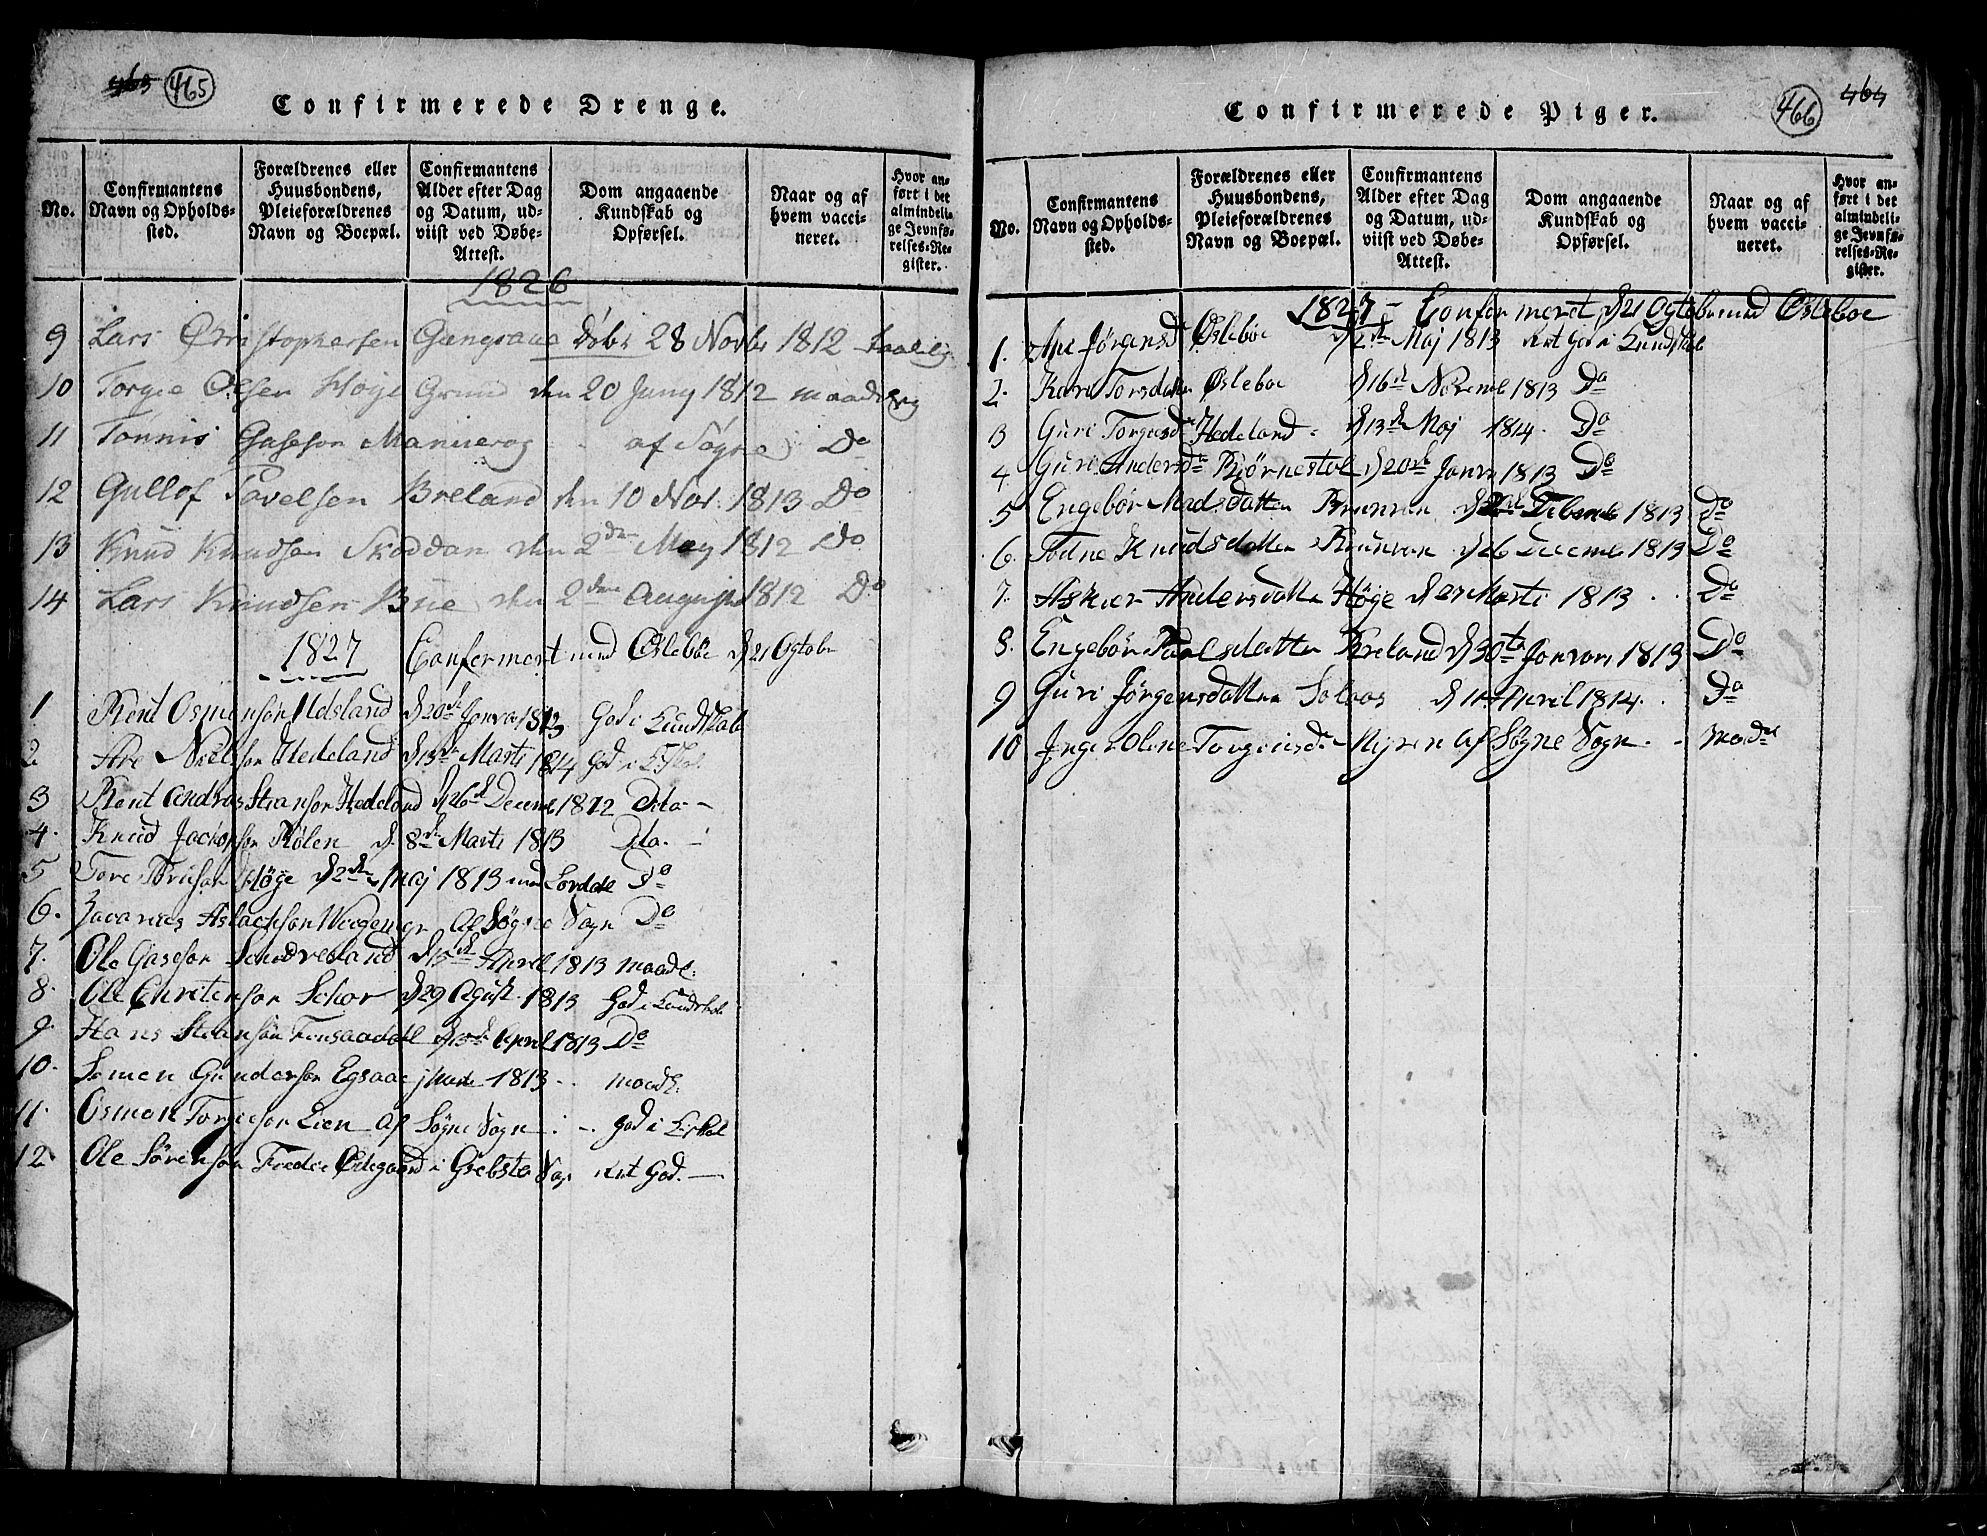 463 465
Confirmerede Drenge.
No.
Confirmantens Navn og Opholds-sted.
Forældrenes eller Huusbondens, Pleieforældrenes Navn og Boepæl.
Confirmantens Alder efter Dag og Datum, ud-viist ved Døbe-Attest.
Dom angaaende Kundskab og Opførsel.
Naar og af hvem vacci-neret.
Hvor an-ført i det almindeli-ge Jevnfø-relses-Re-gister.
1826
9 Lars Christophersen Gangsaae Døbt 28 Novbr 1812 taalelig
10 Torgie Olsen Høye Grund den 20 Juny 1812 maadelig
11 Tonnis Gasesen af Søgne Do
12 Gullof Povelsen Breland den 10 Nov: 1813 Do
13 Knud Knudsen Skoddan den 2den May 1812 Do
14 Lars Knudsen Bue den 2den August 1812 Do
1827 Confermert med Øslebøe d 21 Ogtobr
1 Bent Osmonson Udsland d 20de Jonvar 1813 God i Kundskab
2. Are Nielson Hedeland d 13de Marti 1814 God i
3 Bent Andreas Stianson Hedeland d 26de Decemb 1812 Dito -
4. Knud Jacobson Kølen d. 8de Marti 1813 Dito. -
5 Tore Høge d 2den Maj 1813 Do
6. Zacarias Aslachson af Søgne Sogn Do
7. Ole Gaseson d 15de April 1813 maadl:
8. Ole Chritenson Schor d 29 Agust 1813 God i Kundskab
9. Hans Stianson Finsaadal d 13de April 1813 Do
10. Semen Gunderson Egsaae Marti 1813 maadl:
11. Osmon Torgieson Lien af Søgne Sogn God i
12 Ole Sørenson Øtegaard i Grebsta Sogn ret God.
Confirmerede Piger.
466 464
No.
Confirmantens Navn og Opholds-sted.
Forældrenes eller Huusbondens, Pleieforældrenes Navn og Boepæl.
Confirmantens Alder efter Dag og Datum, ud-viist ved Døbe-Attest.
Dom angaaende Kundskab og Opførsel.
Naar og af hvem vacci-neret.
Hvor an-ført i det almindeli-ge Jevnfø-relses-Re-gister.
1827 - Confermeret d 21 Ogtobr med Øsleboe
1. Ane Jørgensd Øsleboe d 2de Maj 1813 ret God i Kundskab
2. Kari Torsdatter Øsleboe d 16de Novemb 1813 Do
3 Guri Torgiesd Hedeland d 13de Maj 1814. Do
4 Guri Andersd Biørnestøl d 20de Jonvr 1813 Do
5 Engebør Madsdatter Brunven 1813 Do
6. Todne Knudsdatter Brunven d 26 Decemb 1813 Do
7. Askier Andersdatter Høge d 27 Marti 1813 Do
8. Engebør Paalsdatter Breland d 30te Jonvari 1813 Do
9 Guri Jørgensdatter Solaas d 11 April 1814. Do
10 Inger Oline Torgeusd. Myren af Søgne Sogn. - maadl